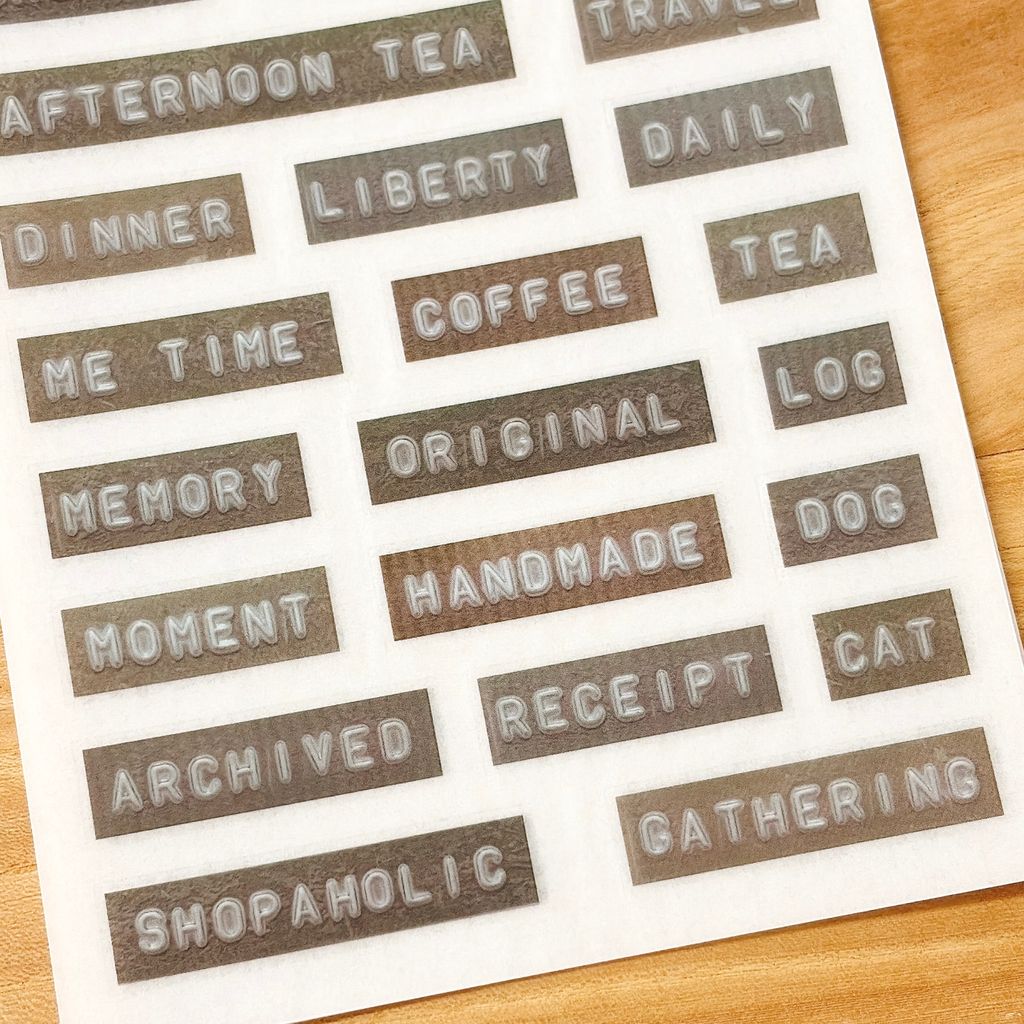 TRAVEL
AFTERNOON TEA
DAILY
LIBERTY
DINNER
TEA
COFFEE
ME TIME
LOG
ORIGINAL
MEMORY
DOG
HANDMADE
MOMENT
CAT
RECEIPT
ARCHIVED
GATHERING
SHOPAHOLIC